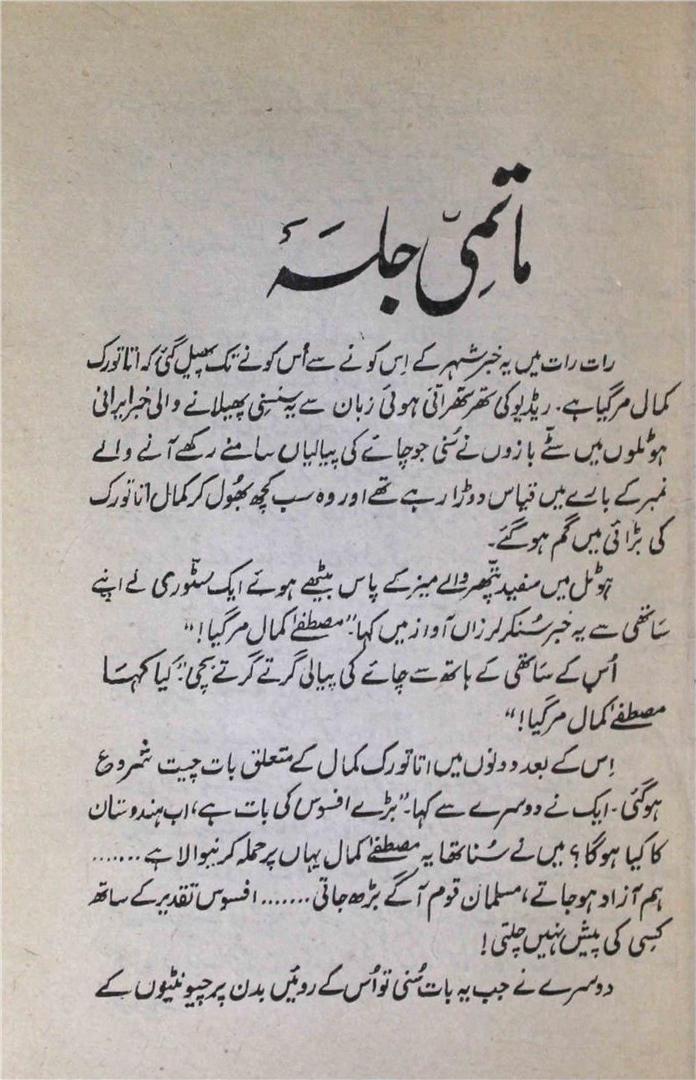 ماتمی جلسہ
رات رات میں یہ خبر شہر کے اِس کونے سے اُس کونے تک پھیل گئی کہ اتاتورک
کمال مر گیا ہے۔ ریڈیو کی تھرتھراتی ہوئی زبان سے یہ سنسنی پھیلانے والی خبر ایرانی
ہوٹلوں میں سٹّے بازوں نے سُنی جو چائے کی پیالیاں سامنے رکھے آنے والے
نمبر کے بارے میں قیاس دوڑا رہے تھے اور وہ سب کچھ بھُول کر کمال اتاتورک
کی بڑائی میں گم ہو گئے۔
ہوٹل میں سفید پتّھر والے میز کے پاس بیٹھے ہوئے ایک سٹوری نے اپنے
ساتھی سے یہ خبر سُنکر لرزاں آواز میں کہا۔ "مصطفےٰ کمال مر گیا!"
اُس کے ساتھی کے ہاتھ سے چائے کی پیالی گرتے گرتے بچی "کیا کہا
مصطفےٰ کمال مر گیا!"
اِس کے بعد دونوں میں اتاتورک کمال کے متعلق بات چیت شروع
ہو گئی۔ ایک نے دوسرے سے کہا۔ "بڑے افسوس کی بات ہے، اب ہندوستان
کا کیا ہو گا؟ میں نے سُنا تھا یہ مصطفےٰ کمال یہاں پر حملہ کرنیوالا ہے.......
ہم آزاد ہو جاتے، مسلمان قوم آگے بڑھ جاتی....... افسوس تقدیر کے ساتھ
کِسی کی پیش نہیں چلتی!
دوسرے نے جب یہ بات سُنی تو اُس کے روئیں بدن پر چیونٹیوں کے